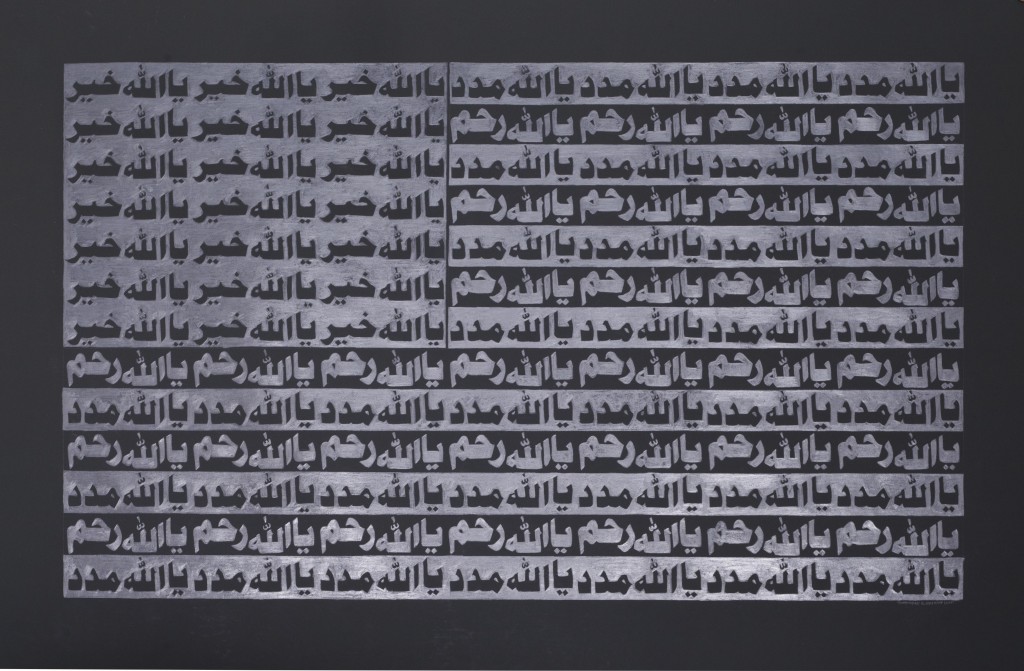 يا الله مدد يا الله مدد يا الله مدد يا الله مدد يا الله خير يا الله خير يا الله خير
يا الله رحم يا الله رحم يا الله رحم يا الله رحم يا الله خير يا الله خير يا الله خير
يا الله مدد يا الله مدد يا الله مدد يا الله مدد يا الله خير يا الله خير يا الله خير
يا الله رحم يا الله رحم يا الله رحم يا الله رحم يا الله خير يا الله خير يا الله خير
يا الله مدد يا الله مدد يا الله مدد يا الله مدد يا الله خير يا الله خير يا الله خير
يا الله رحم يا الله رحم يا الله رحم يا الله رحم يا الله خير يا الله خير يا الله خير
يا الله مدد يا الله مدد يا الله مدد يا الله مدد يا الله خير يا الله خير يا الله خير
يا الله رحم يا الله رحم يا الله رحم يا الله رحم يا الله رحم يا الله رحم يا الله رحم
يا الله مدد يا الله مدد يا الله مدد يا الله مدد يا الله مدد يا الله مدد يا الله مدد
يا الله رحم يا الله رحم يا الله رحم يا الله رحم يا الله رحم يا الله رحم يا الله رحم
يا الله مدد يا الله مدد يا الله مدد يا الله مدد يا الله مدد يا الله مدد يا الله مدد
يا الله رحم يا الله رحم يا الله رحم يا الله رحم يا الله رحم يا الله رحم يا الله رحم
يا الله مدد يا الله مدد يا الله مدد يا الله مدد يا الله مدد يا الله مدد يا الله مدد